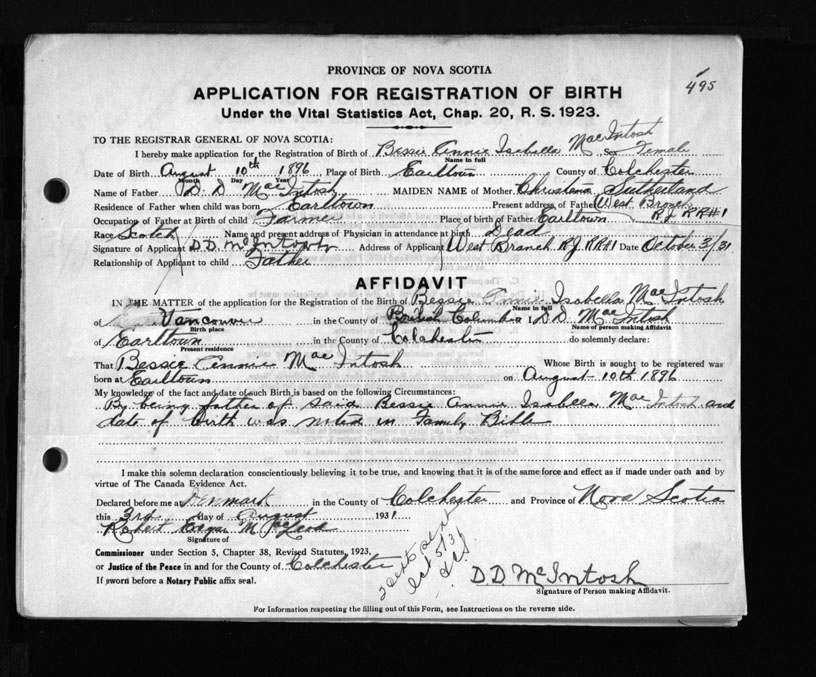 PROVINCE OF NOVA SCOTIA
495
APPLICATION FOR REGISTRATION OF BIRTH
Under the Vital Statistics Act, Chap. 20, R. S. 1923.
TO THE REGISTRAR GENERAL OF NOVA SCOTIA:
I hereby make application for the Registration of Birth of Bessie Annie Isabella MacIntosh Sex Female
Name in full
Date of Birth August 10th 1896 Place of Birth Earltown County of Colchester
Month Day Year
Name of Father D. D. MacIntosh MAIDEN NAME of Mother Christena Sutherland
Residence of Father when child was born Earltown Present address of Father West Branch
Occupation of Father at Birth of child Farmer Place of birth of Father Earltown R J RR#1
Race Scotch Name and present address of Physician in attendance at birth Dead
Signature of Applicant D. D. McIntosh Address of Applicant West Branch R J RR#1 Date October 3/31
Relationship of Applicant to child Father
AFFIDAVIT
IN THE MATTER of the application for the Registration of the Birth of Bessie Annie Isabella MacIntosh
Name in full
of Vancouver in the County of British Columbia I, D D. MacIntosh
Birth place Name of person making Affidavit
of Earltown in the County of Colchester do solemnly declare:
Present residence
That Bessie Annie MacIntosh Whose Birth is sought to be registered was
born at Earltown on August 10th 1896
My knowledge of the fact and date of such Birth is based on the following Circumstances:
By being father of said Bessie Annie Isabella MacIntosh and
date of birth was noted in Family Bible
I make this solemn declaration conscientiously believing it to be true, and knowing that it is of the same force and effect as if made under oath and by
virtue of The Canada Evidence Act.
Declared before me at Denmark in the County of Colchester and Province of Nova Scotia
this 3rd day of August 1931
Robert McLeod
Signature of
Commissioner under Section 5, Chapter 38, Revised Statutes, 1923,
or Justice of the Peace in and for the County of Colchester
If sworn before a Notary Public affix seal.
Oct 5/31
D. D. McIntosh
Signature of Person making Affidavit.
For Information respecting the filling out of this Form, see Instructions on the reverse side.